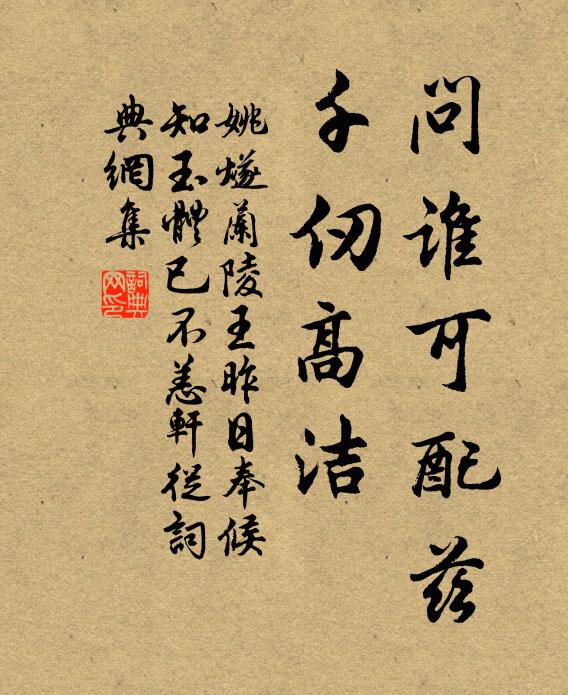 問誰可配茲
千仞高洁
姚燧蘭陵王昨日奉候
知玉體已不恙軒從詞
典網集
詞典
网印